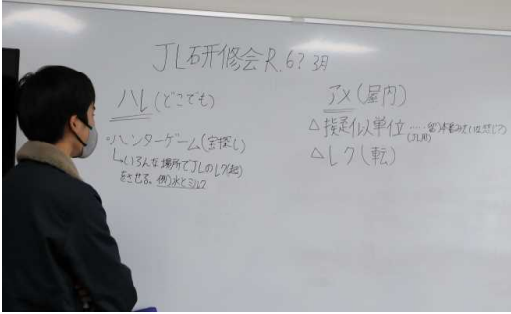 JL研修会R.6?3月
ハレ(どこでも)
ハンターゲーム(宝探し)
いろんな場所でJLのレク(転)
をさせる。例)水とミルク
アメ(屋内)
△擬似単位
(JL用)
△レク(転)